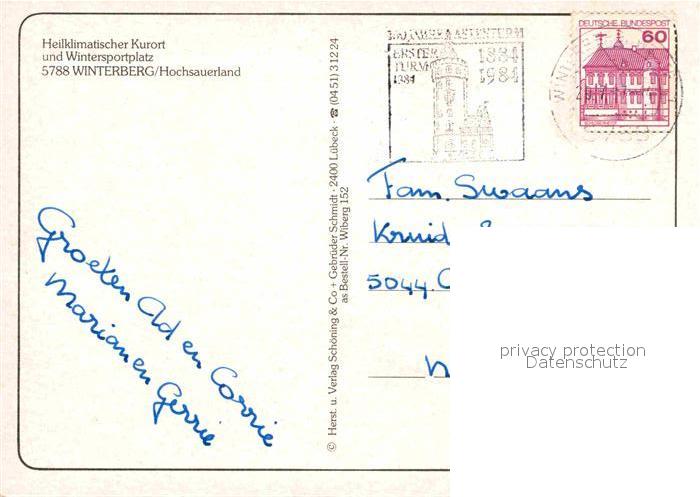 Heilklimatischer Kurort
und Wintersportplatz
5788 WINTERBERG/Hochsauerland
100 JAHRE ASTENTURM
ERSTER
TURM
1884
1884
1984
DEUTSCHE BUNDESPOST
60
Fam. Swaans
Kruid
5044
Groeten Ad en Corrie
Marian en Gerrie
© Herst. u. Verlag Schöning & Co + Gebrüder Schmidt · 2400 Lübeck · ☎ (04 51) 3 12 24
as Bestell-Nr. Wiberg 152
privacy protection
Datenschutz